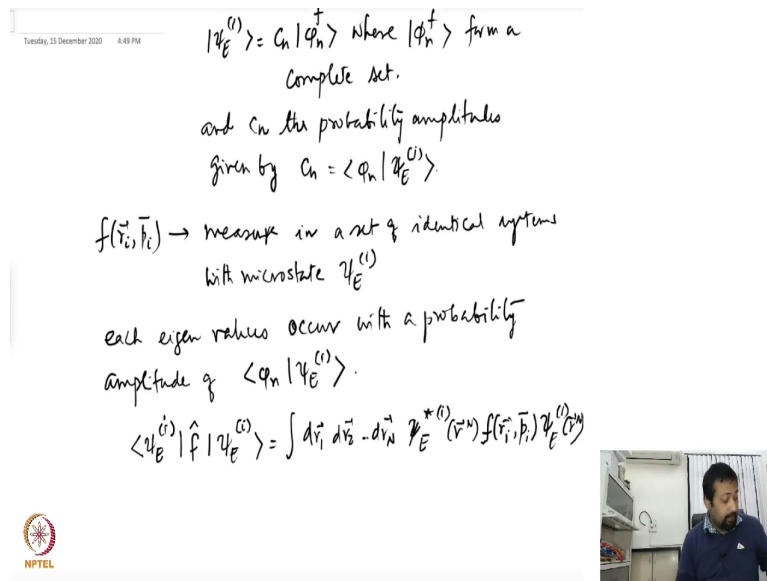 Tuesday, 15 December 2020 4:49 PM
|ψ_E^(i)⟩ = C_n |φ_n^f⟩ where |φ_n^f⟩ form a
complete set.
and C_n the probability amplitudes
given by C_n = ⟨φ_n|ψ_E^(i)⟩.
f(r⃗_i, p̄_i) → measure in a set of identical systems
with microstate ψ_E^(i)
each eigen values occur with a probability
amplitude of ⟨φ_n|ψ_E^(i)⟩.
⟨ψ_E^(i)|f̂|ψ_E^(i)⟩ = ∫ dr⃗_1 dr⃗_2 - dr⃗_N ψ_E^*(i)(r⃗^N) f(r⃗_i, p̄_i) ψ_E^(i)(r⃗^N)
NPTEL